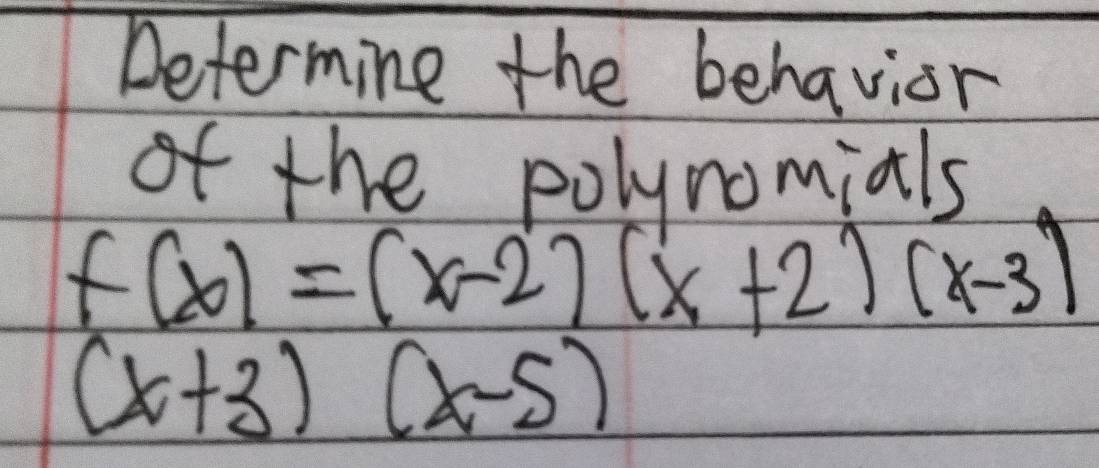 Determine the behavior
of the polynomials
f(x) = (x-2) (x +2) (x-3)
(x+3) (x-5)